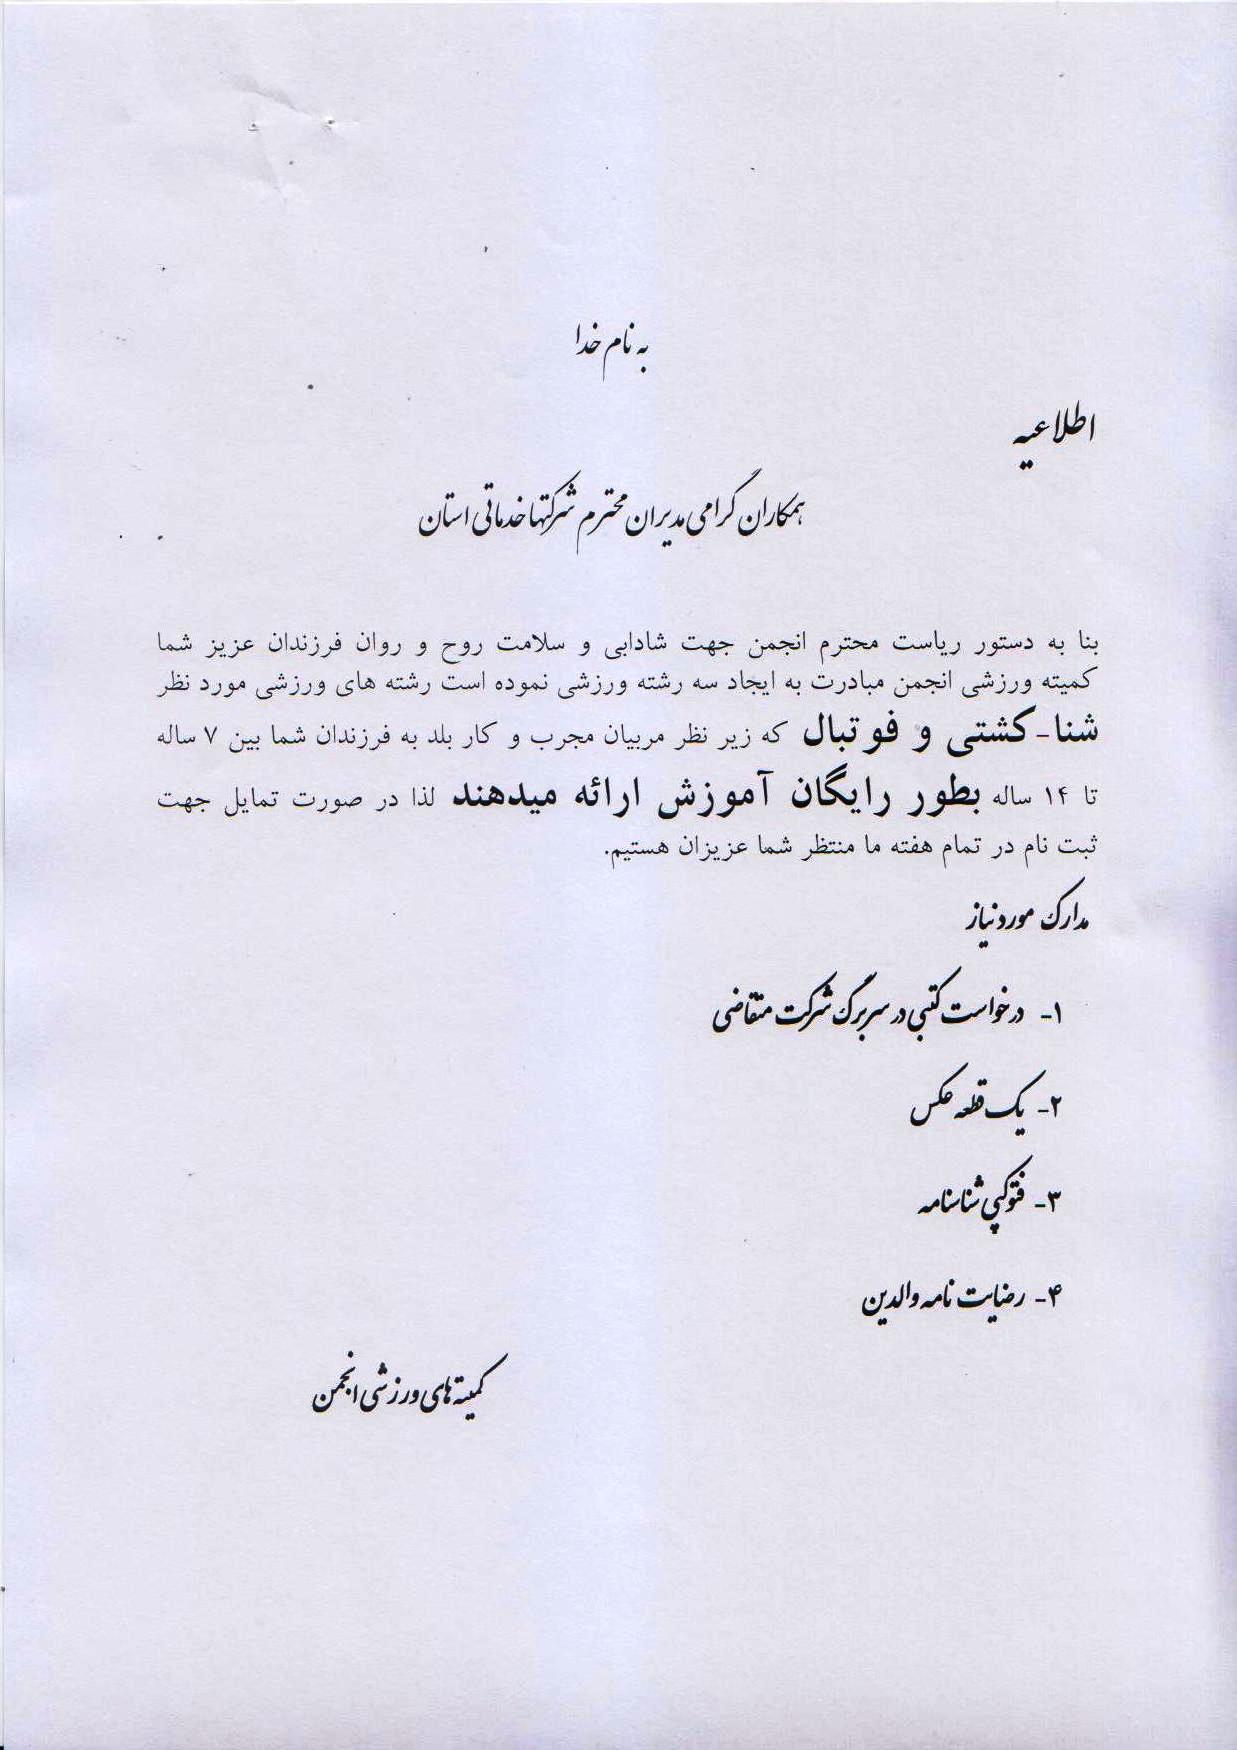 به نام خدا
اطلاعیه
همکاران گرامی مدیران محترم شرکتها خدماتی استان
بنا به دستور ریاست محترم انجمن جهت شادابی و سلامت روح و روان فرزندان عزیز شما
کمیته ورزشی انجمن مبادرت به ایجاد سه رشته ورزشی نموده است رشته های ورزشی مورد نظر
شنا-کشتی و فوتبال که زیر نظر مربیان مجرب و کار بلد به فرزندان شما بین ۷ ساله
تا ۱۴ ساله بطور رایگان آموزش ارائه میدهند لذا در صورت تمایل جهت
ثبت نام در تمام هفته ما منتظر شما عزیزان هستیم.
مدارک مورد نیاز
۱- درخواست کتبی در سربرگ شرکت متقاضی
۲- یک قطعه عکس
۳- فتوکپی شناسنامه
۴- رضایت نامه والدین
کمیته های ورزشی انجمن